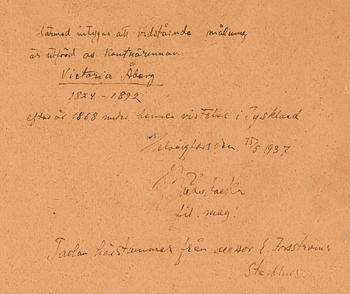 Härmed intygas att vidstående målning
är utförd av konstnärinnan
Victoria Åberg
1824 - 1892
efter år 1868 under hennes vistelse i Tyskland
Helsingfors den 15/5 1937
fil. mag.
Tavlan härstammar från assessor E Forsströms